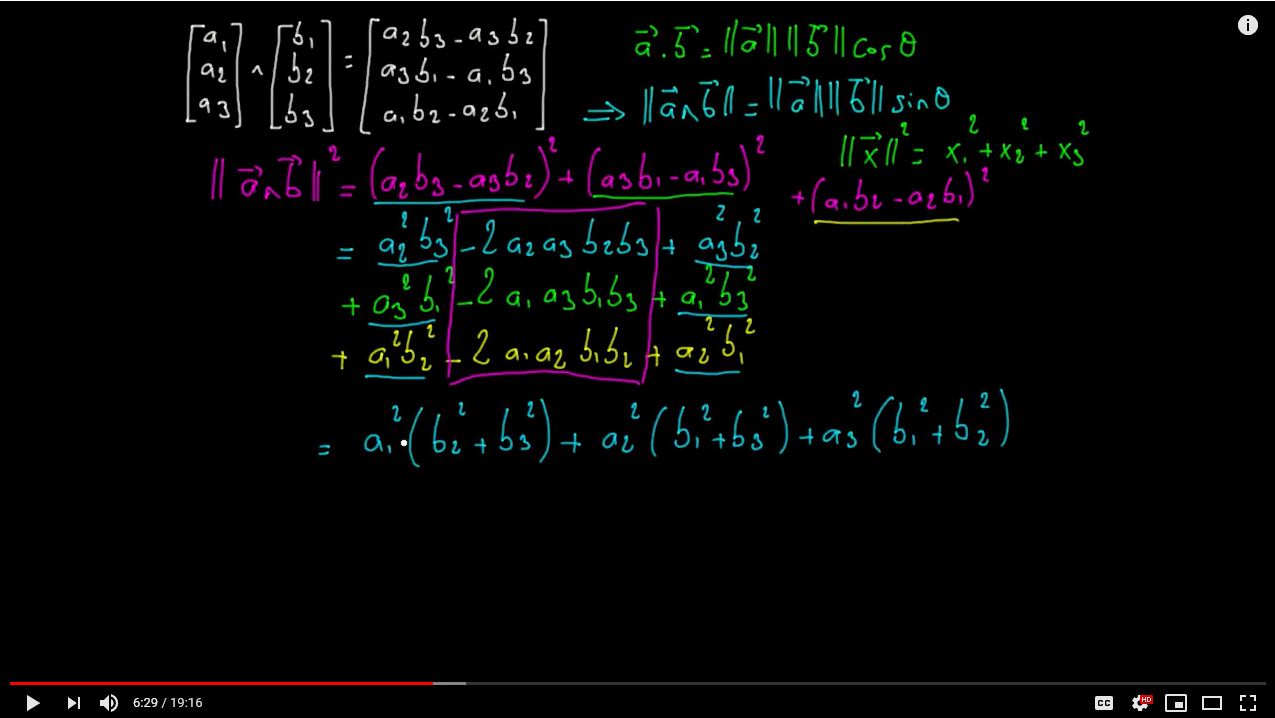 [a₁ a₂ a₃] ∧ [b₁ b₂ b₃] = [a₂b₃ - a₃b₂ a₃b₁ - a₁b₃ a₁b₂ - a₂b₁]
a⃗ . b⃗ = ||a⃗|| ||b⃗|| cos θ
⟹ ||a⃗ ∧ b⃗|| = ||a⃗|| ||b⃗|| sin θ
||x⃗||² = x₁² + x₂² + x₃²
||a⃗ ∧ b⃗||² = (a₂b₃ - a₃b₂)² + (a₃b₁ - a₁b₃)² + (a₁b₂ - a₂b₁)²
= a₂²b₃² - 2 a₂a₃ b₂b₃ + a₃²b₂²
+ a₃²b₁² - 2 a₁a₃b₁b₃ + a₁²b₃²
+ a₁²b₂² - 2 a₁a₂ b₁b₂ + a₂²b₁²
= a₁²(b₂² + b₃²) + a₂²(b₁² + b₃²) + a₃²(b₁² + b₂²)
6:29 / 19:16 CC HD